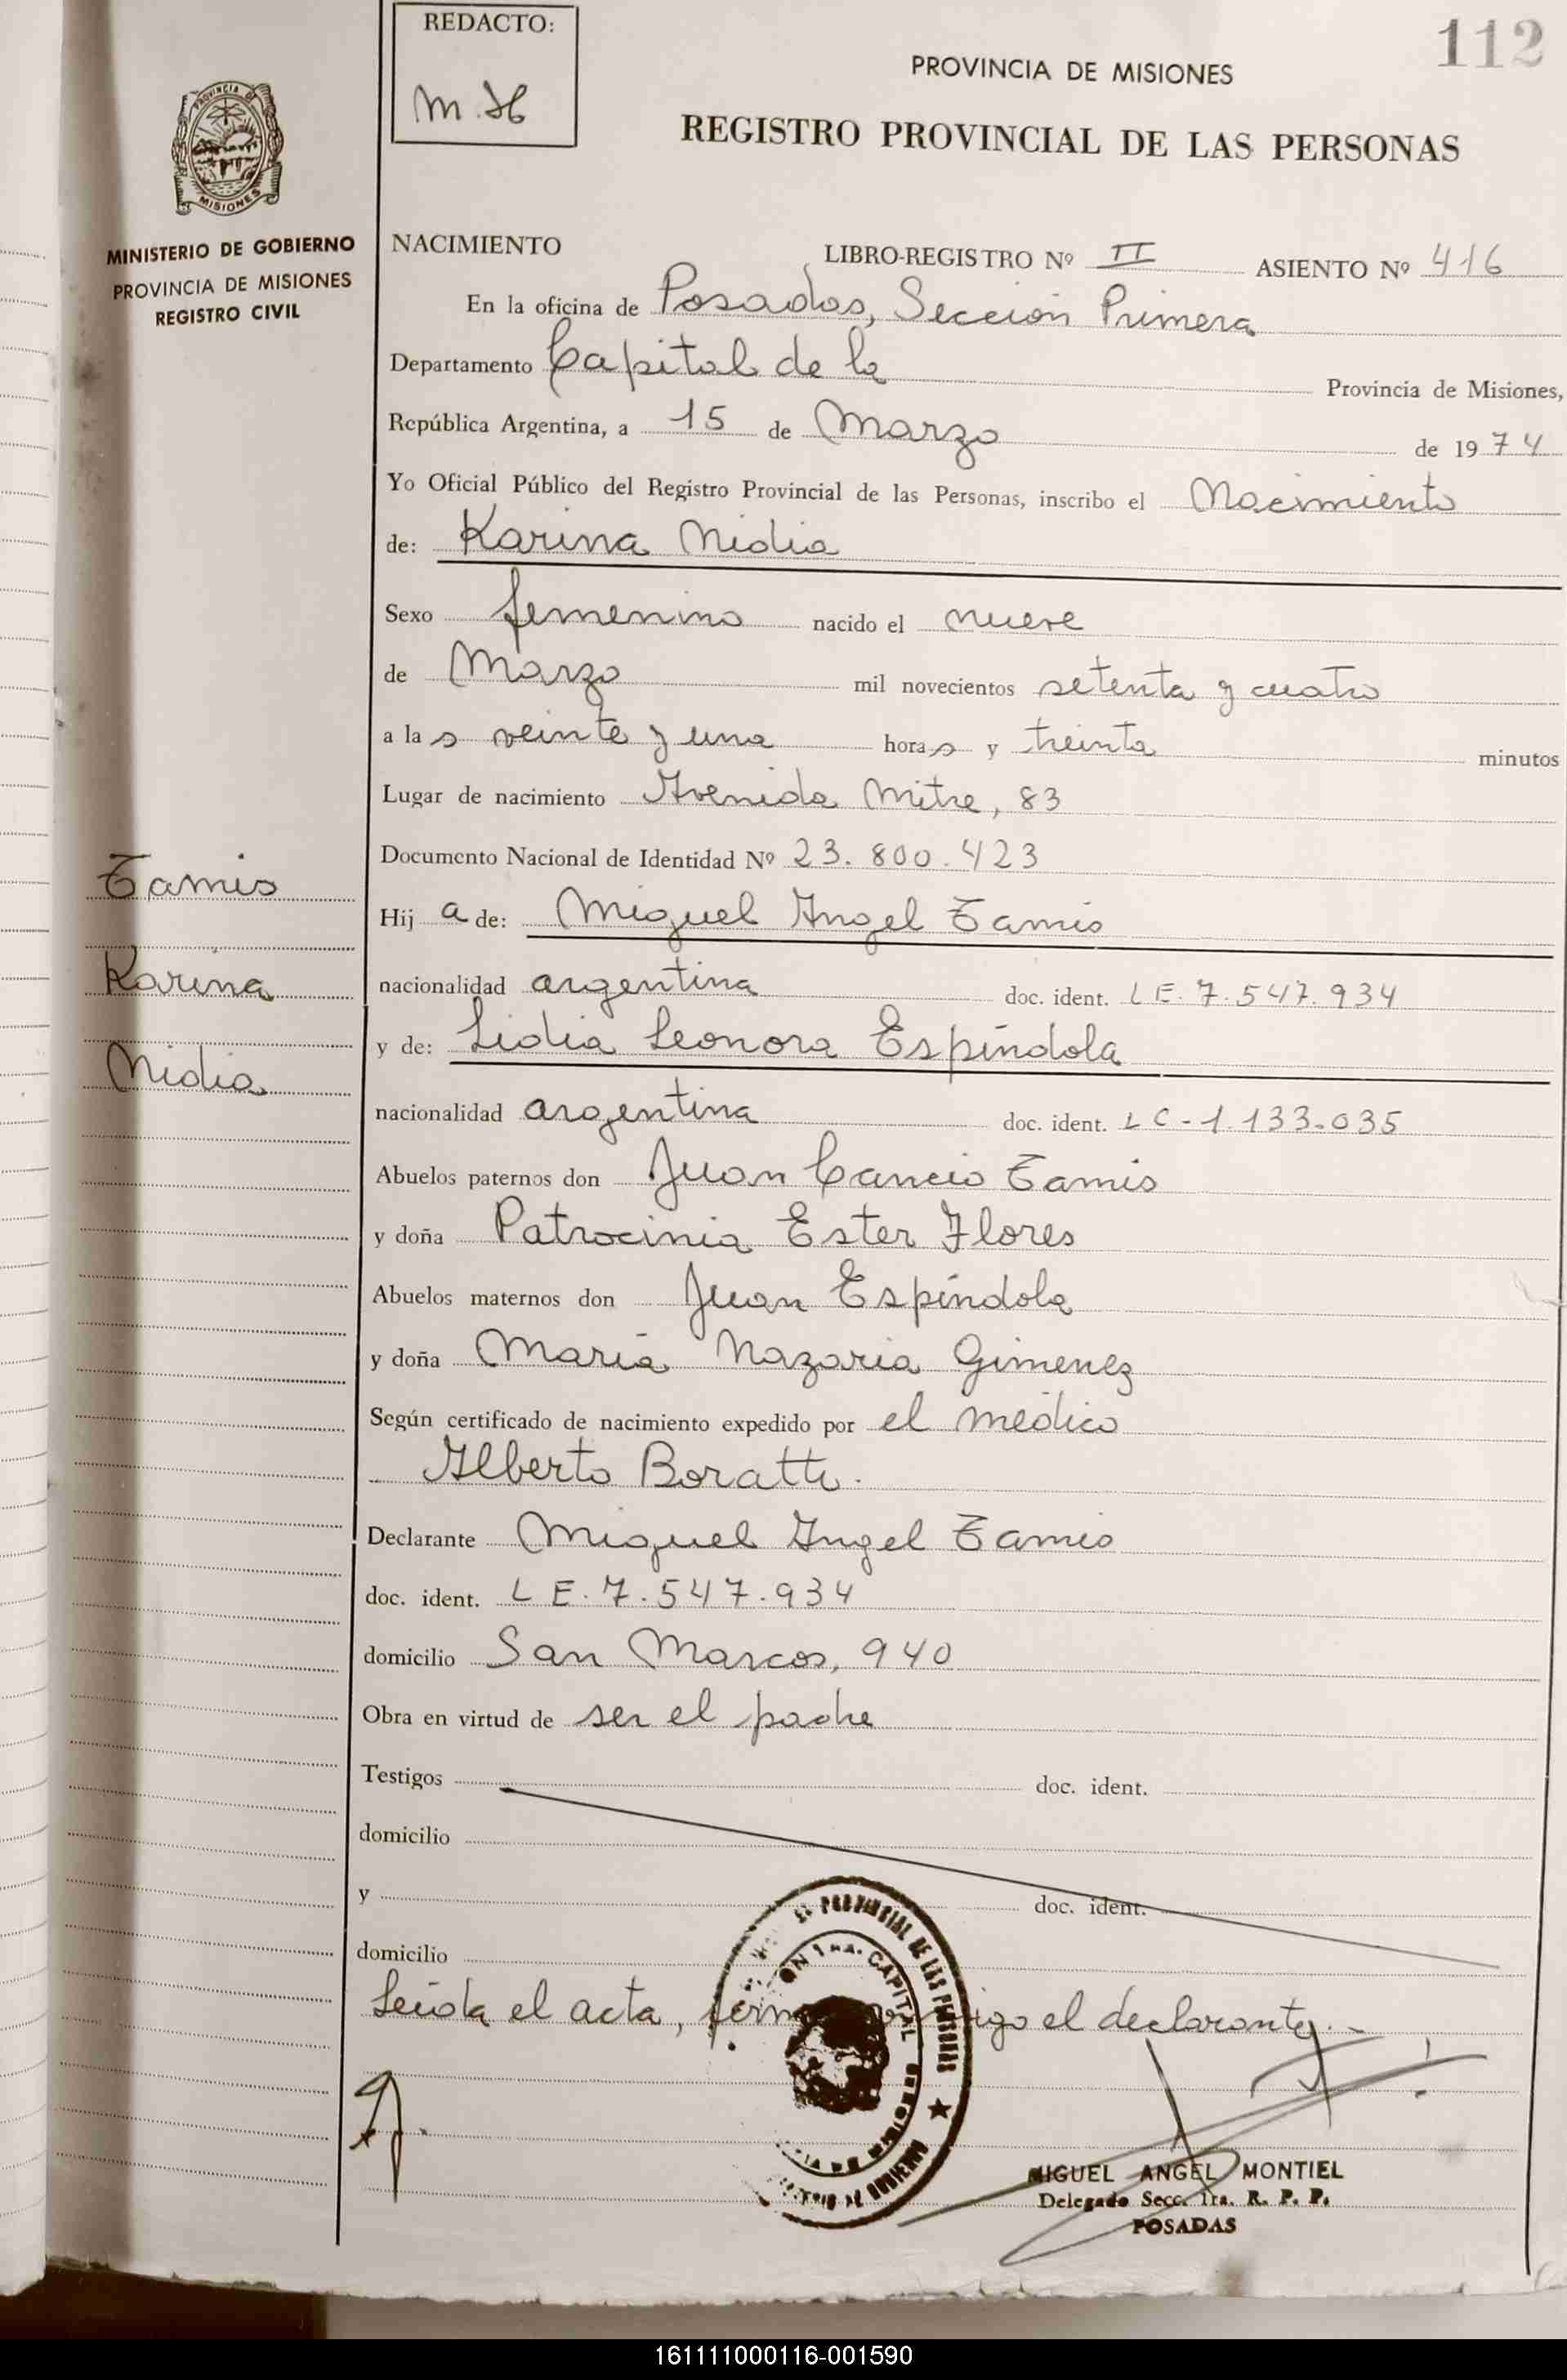 112
REDACTO:
M.H
PROVINCIA DE MISIONES
REGISTRO PROVINCIAL DE LAS PERSONAS
PROVINCIA DE
MISIONES
MINISTERIO DE GOBIERNO
PROVINCIA DE MISIONES
REGISTRO CIVIL
NACIMIENTO LIBRO-REGISTRO Nº II ASIENTO Nº 416
En la oficina de Posadas, Sección Primera
Departamento Capital de la Provincia de Misiones,
República Argentina, a 15 de Marzo de 1974
Yo Oficial Público del Registro Provincial de las Personas, inscribo el Nacimiento
de: Karina Nidia
Sexo femenino nacido el nueve
de Marzo mil novecientos setenta y cuatro
a las veinte y una horas y treinta minutos
Lugar de nacimiento Avenida Mitre, 83
Documento Nacional de Identidad Nº 23.800.423
Tamis
Hija de: Miguel Angel Tamis
Karina
nacionalidad argentina doc. ident. LE.7.547.934
y de: Lidia Leonora Espíndola
Nidia
nacionalidad argentina doc. ident. LC-1.133.035
Abuelos paternos don Juan Cancio Tamis
y doña Patrocinia Ester Flores
Abuelos maternos don Juan Espíndola
y doña María Nazaria Gimenez
Según certificado de nacimiento expedido por el médico
Alberto Boratti.
Declarante Miguel Angel Tamis
doc. ident. LE.7.547.934
domicilio San Marcos, 940
Obra en virtud de ser el padre
Testigos doc. ident.
domicilio
y doc. ident.
domicilio
Leída el acta, el declarante.-
PROVINCIAL DE LAS PERSONAS
1ra. CAPITAL
MIGUEL ANGEL MONTIEL
Delegado Secc. 1ra. R. P. P.
POSADAS
161111000116-001590